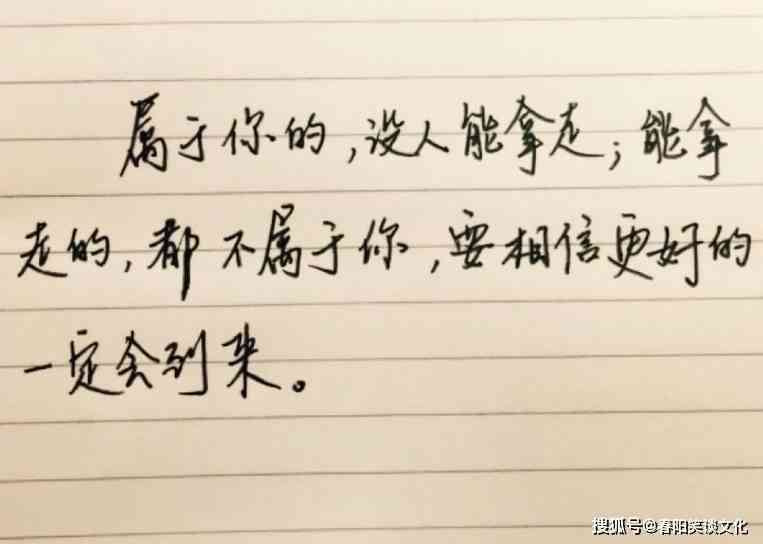 属于你的，没人能拿走；能拿
走的，都不属于你，要相信更好的
一定会到来。
搜狐号@春阳笑谈文化